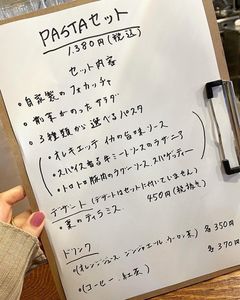 PASTAセット
1,380円(税込)
セット内容
・自家製のフォカッチャ
・前菜がのったサラダ
・3種類から選べるパスタ
・オレキエッテ イカの旨味ソース
・スパイス香る牛ミートソースのラザニア
・トロトロ豚肉のラグーソース、スパゲッティー
デザート(デザートはセットに付いていません)
・栗のティラミス 450円(税抜き)
ドリンク
(オレンジジュース ジンジャエール ウーロン茶) 各350円
(コーヒー、紅茶) 各370円